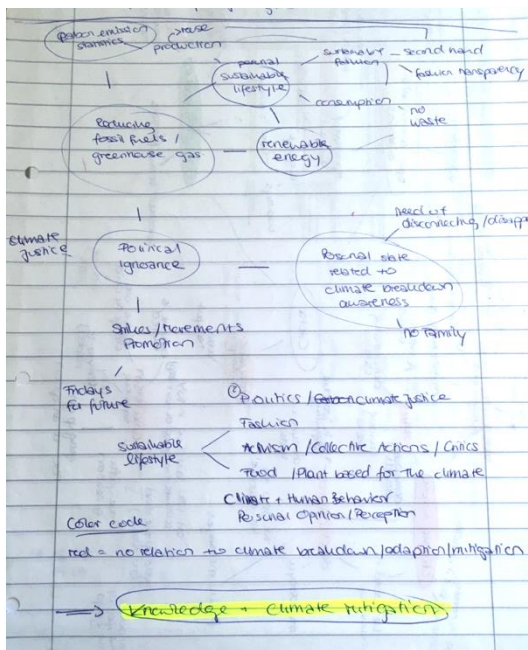 Carbon emission
statistics
reuse
production
personal
sustainable
lifestyle
sustainable
fashion
second hand
fashion transparency
consumption
no
waste
Reducing
fossil fuels /
greenhouse gas
renewable
energy
climate
justice
Political
ignorance
Need of
disconnecting /
Personal state
related to
climate breakdown
awareness
no family
Strikes / Movements
Promotion
Fridays
for future
Politics / climate justice
Fashion
sustainable
lifestyle
Activism / Collective Actions / Critics
Food / Plant based for the climate
Climate + Human Behavior
Personal Opinion / Perception
Color code
red = no relation to climate breakdown/adaption/mitigation
Knowledge + climate mitigation